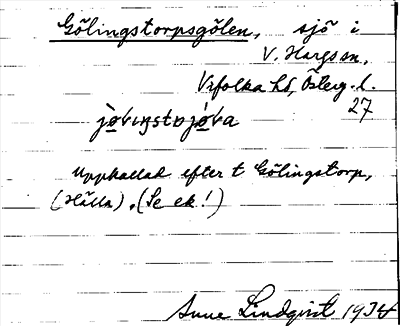 Gölingstorpsgölen, sjö i
V. Hargs sn,
Vifolka hd, Österg. l.
27
jòvıŋstɒjǿva
Uppkallad efter t Gölingstorp,
(Hälla). (Se ek!)
Sune Lindqvist 1934